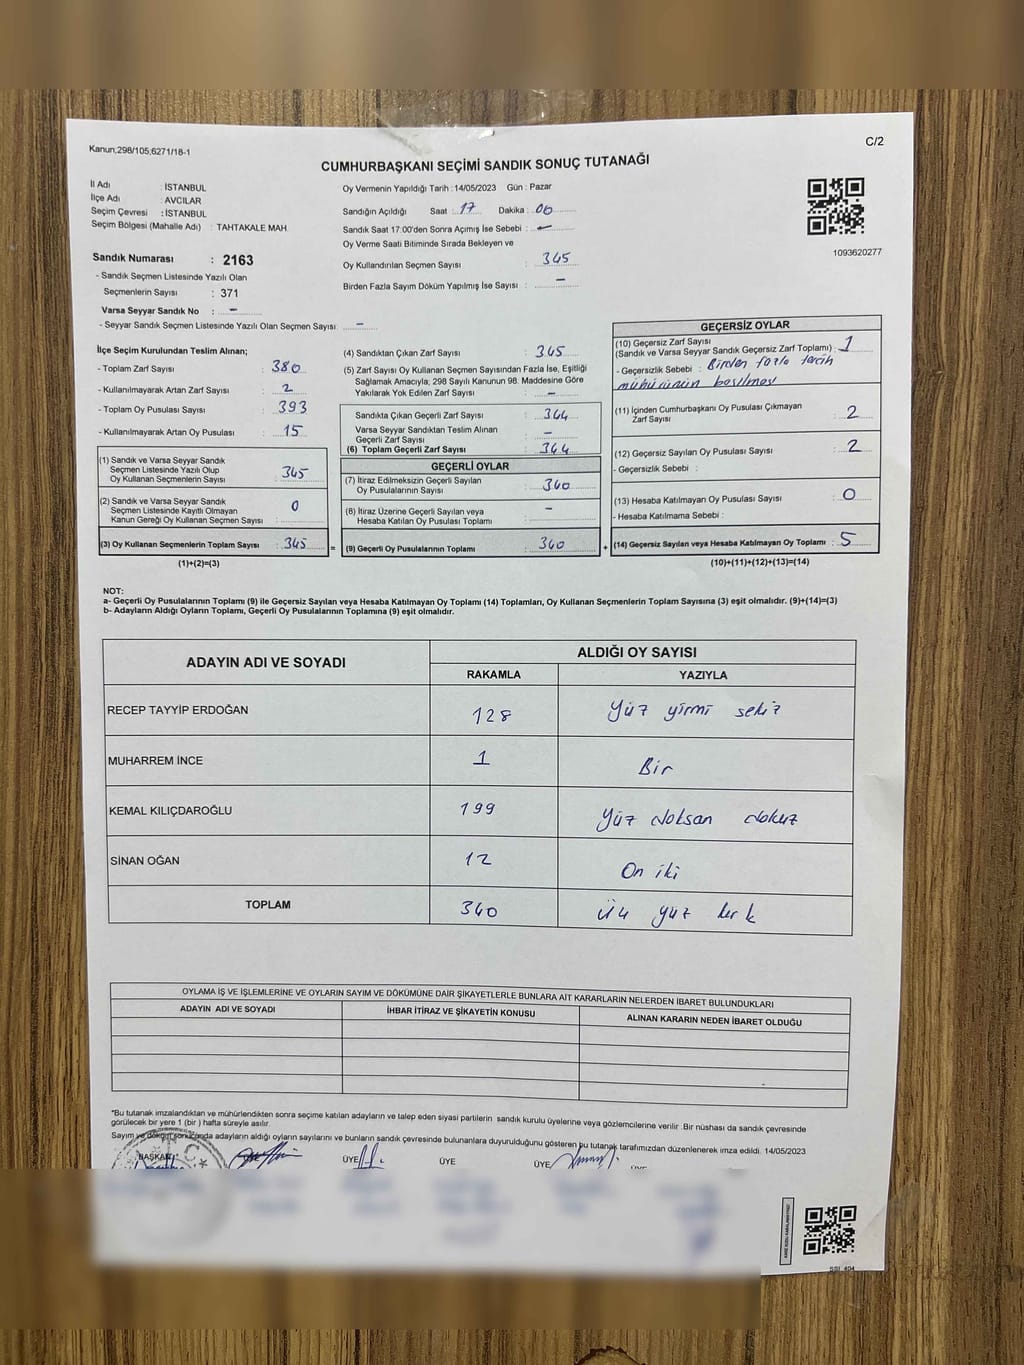 Kanun;298/105,6271/18-1
C/2
CUMHURBAŞKANI SEÇİMİ SANDIK SONUÇ TUTANAĞI
İl Adı : İSTANBUL
İlçe Adı : AVCILAR
Seçim Çevresi : İSTANBUL
Seçim Bölgesi (Mahalle Adı) : TAHTAKALE MAH.
Sandık Numarası : 2163
- Sandık Seçmen Listesinde Yazılı Olan
Seçmenlerin Sayısı : 371
Varsa Seyyar Sandık No : -
- Seyyar Sandık Seçmen Listesinde Yazılı Olan Seçmen Sayısı : -
Oy Vermenin Yapıldığı Tarih : 14/05/2023 Gün : Pazar
Sandığın Açıldığı Saat : 17 Dakika : 06
Sandık Saat 17:00'den Sonra Açımış İse Sebebi : -
Oy Verme Saati Bitiminde Sırada Bekleyen ve
Oy Kullandırılan Seçmen Sayısı : 345
Birden Fazla Sayım Döküm Yapılmış İse Sayısı : -
1093620277
İlçe Seçim Kurulundan Teslim Alınan;
- Toplam Zarf Sayısı : 380
- Kullanılmayarak Artan Zarf Sayısı : 2
- Toplam Oy Pusulası Sayısı : 393
- Kullanılmayarak Artan Oy Pusulası : 15
(1) Sandık ve Varsa Seyyar Sandık
Seçmen Listesinde Yazılı Olup
Oy Kullanan Seçmenlerin Sayısı : 345
(2) Sandık ve Varsa Seyyar Sandık
Seçmen Listesinde Kayıtlı Olmayan
Kanun Gereği Oy Kullanan Seçmen Sayısı : 0
(3) Oy Kullanan Seçmenlerin Toplam Sayısı : 345
(1)+(2)=(3)
(4) Sandıktan Çıkan Zarf Sayısı : 345
(5) Zarf Sayısı Oy Kullanan Seçmen Sayısından Fazla İse, Eşitliği
Sağlamak Amacıyla; 298 Sayılı Kanunun 98. Maddesine Göre
Yakılarak Yok Edilen Zarf Sayısı : -
Sandıkta Çıkan Geçerli Zarf Sayısı : 344
Varsa Seyyar Sandıktan Teslim Alınan
Geçerli Zarf Sayısı : -
(6) Toplam Geçerli Zarf Sayısı : 344
GEÇERLİ OYLAR
(7) İtiraz Edilmeksizin Geçerli Sayılan
Oy Pusulalarının Sayısı : 340
(8) İtiraz Üzerine Geçerli Sayılan veya
Hesaba Katılan Oy Pusulası Toplamı : -
= (9) Geçerli Oy Pusulalarının Toplamı : 340
GEÇERSİZ OYLAR
(10) Geçersiz Zarf Sayısı
(Sandık ve Varsa Seyyar Sandık Geçersiz Zarf Toplamı) : 1
- Geçersizlik Sebebi : Birden fazla tercih
mühürünün basılması
(11) İçinden Cumhurbaşkanı Oy Pusulası Çıkmayan
Zarf Sayısı : 2
(12) Geçersiz Sayılan Oy Pusulası Sayısı : 2
- Geçersizlik Sebebi :
(13) Hesaba Katılmayan Oy Pusulası Sayısı : 0
- Hesaba Katılmama Sebebi :
+ (14) Geçersiz Sayılan veya Hesaba Katılmayan Oy Toplamı : 5
(10)+(11)+(12)+(13)=(14)
NOT:
a- Geçerli Oy Pusulalarının Toplamı (9) ile Geçersiz Sayılan veya Hesaba Katılmayan Oy Toplamı (14) Toplamları, Oy Kullanan Seçmenlerin Toplam Sayısına (3) eşit olmalıdır. (9)+(14)=(3)
b- Adayların Aldığı Oyların Toplamı, Geçerli Oy Pusulalarının Toplamına (9) eşit olmalıdır.
ADAYIN ADI VE SOYADI ALDIĞI OY SAYISI
RAKAMLA YAZIYLA
RECEP TAYYİP ERDOĞAN 128 Yüz yirmi sekiz
MUHARREM İNCE 1 Bir
KEMAL KILIÇDAROĞLU 199 Yüz doksan dokuz
SİNAN OĞAN 12 On iki
TOPLAM 340 Üç yüz kırk
OYLAMA İŞ VE İŞLEMLERİNE VE OYLARIN SAYIM VE DÖKÜMÜNE DAİR ŞİKAYETLERLE BUNLARA AİT KARARLARIN NELERDEN İBARET BULUNDUKLARI
ADAYIN ADI VE SOYADI İHBAR İTİRAZ VE ŞİKAYETİN KONUSU ALINAN KARARIN NEDEN İBARET OLDUĞU
*Bu tutanak imzalandıktan ve mühürlendikten sonra seçime katılan adayların ve talep eden siyasi partilerin sandık kurulu üyelerine veya gözlemcilerine verilir. Bir nüshası da sandık çevresinde
görülecek bir yere 1 (bir) hafta süreyle asılır.
Sayım ve döküm sonucunda adayların aldığı oyların sayılarını ve bunların sandık çevresinde bulunanlara duyurulduğunu gösteren bu tutanak tarafımızdan düzenlenerek imza edildi. 14/05/2023
BAŞKAN ÜYE ÜYE ÜYE
T.C.